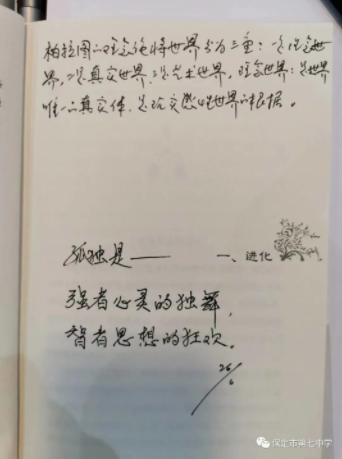 柏拉图的理念论将世界分为三重：一是理念世
界，二是真实世界，三是艺术世界，理念世界：是世界
唯一的真实体，是现实感性世界的根据。
孤独是——
一、进化
强者心灵的独舞，
智者思想的狂欢。
26/6
保定市第七中学